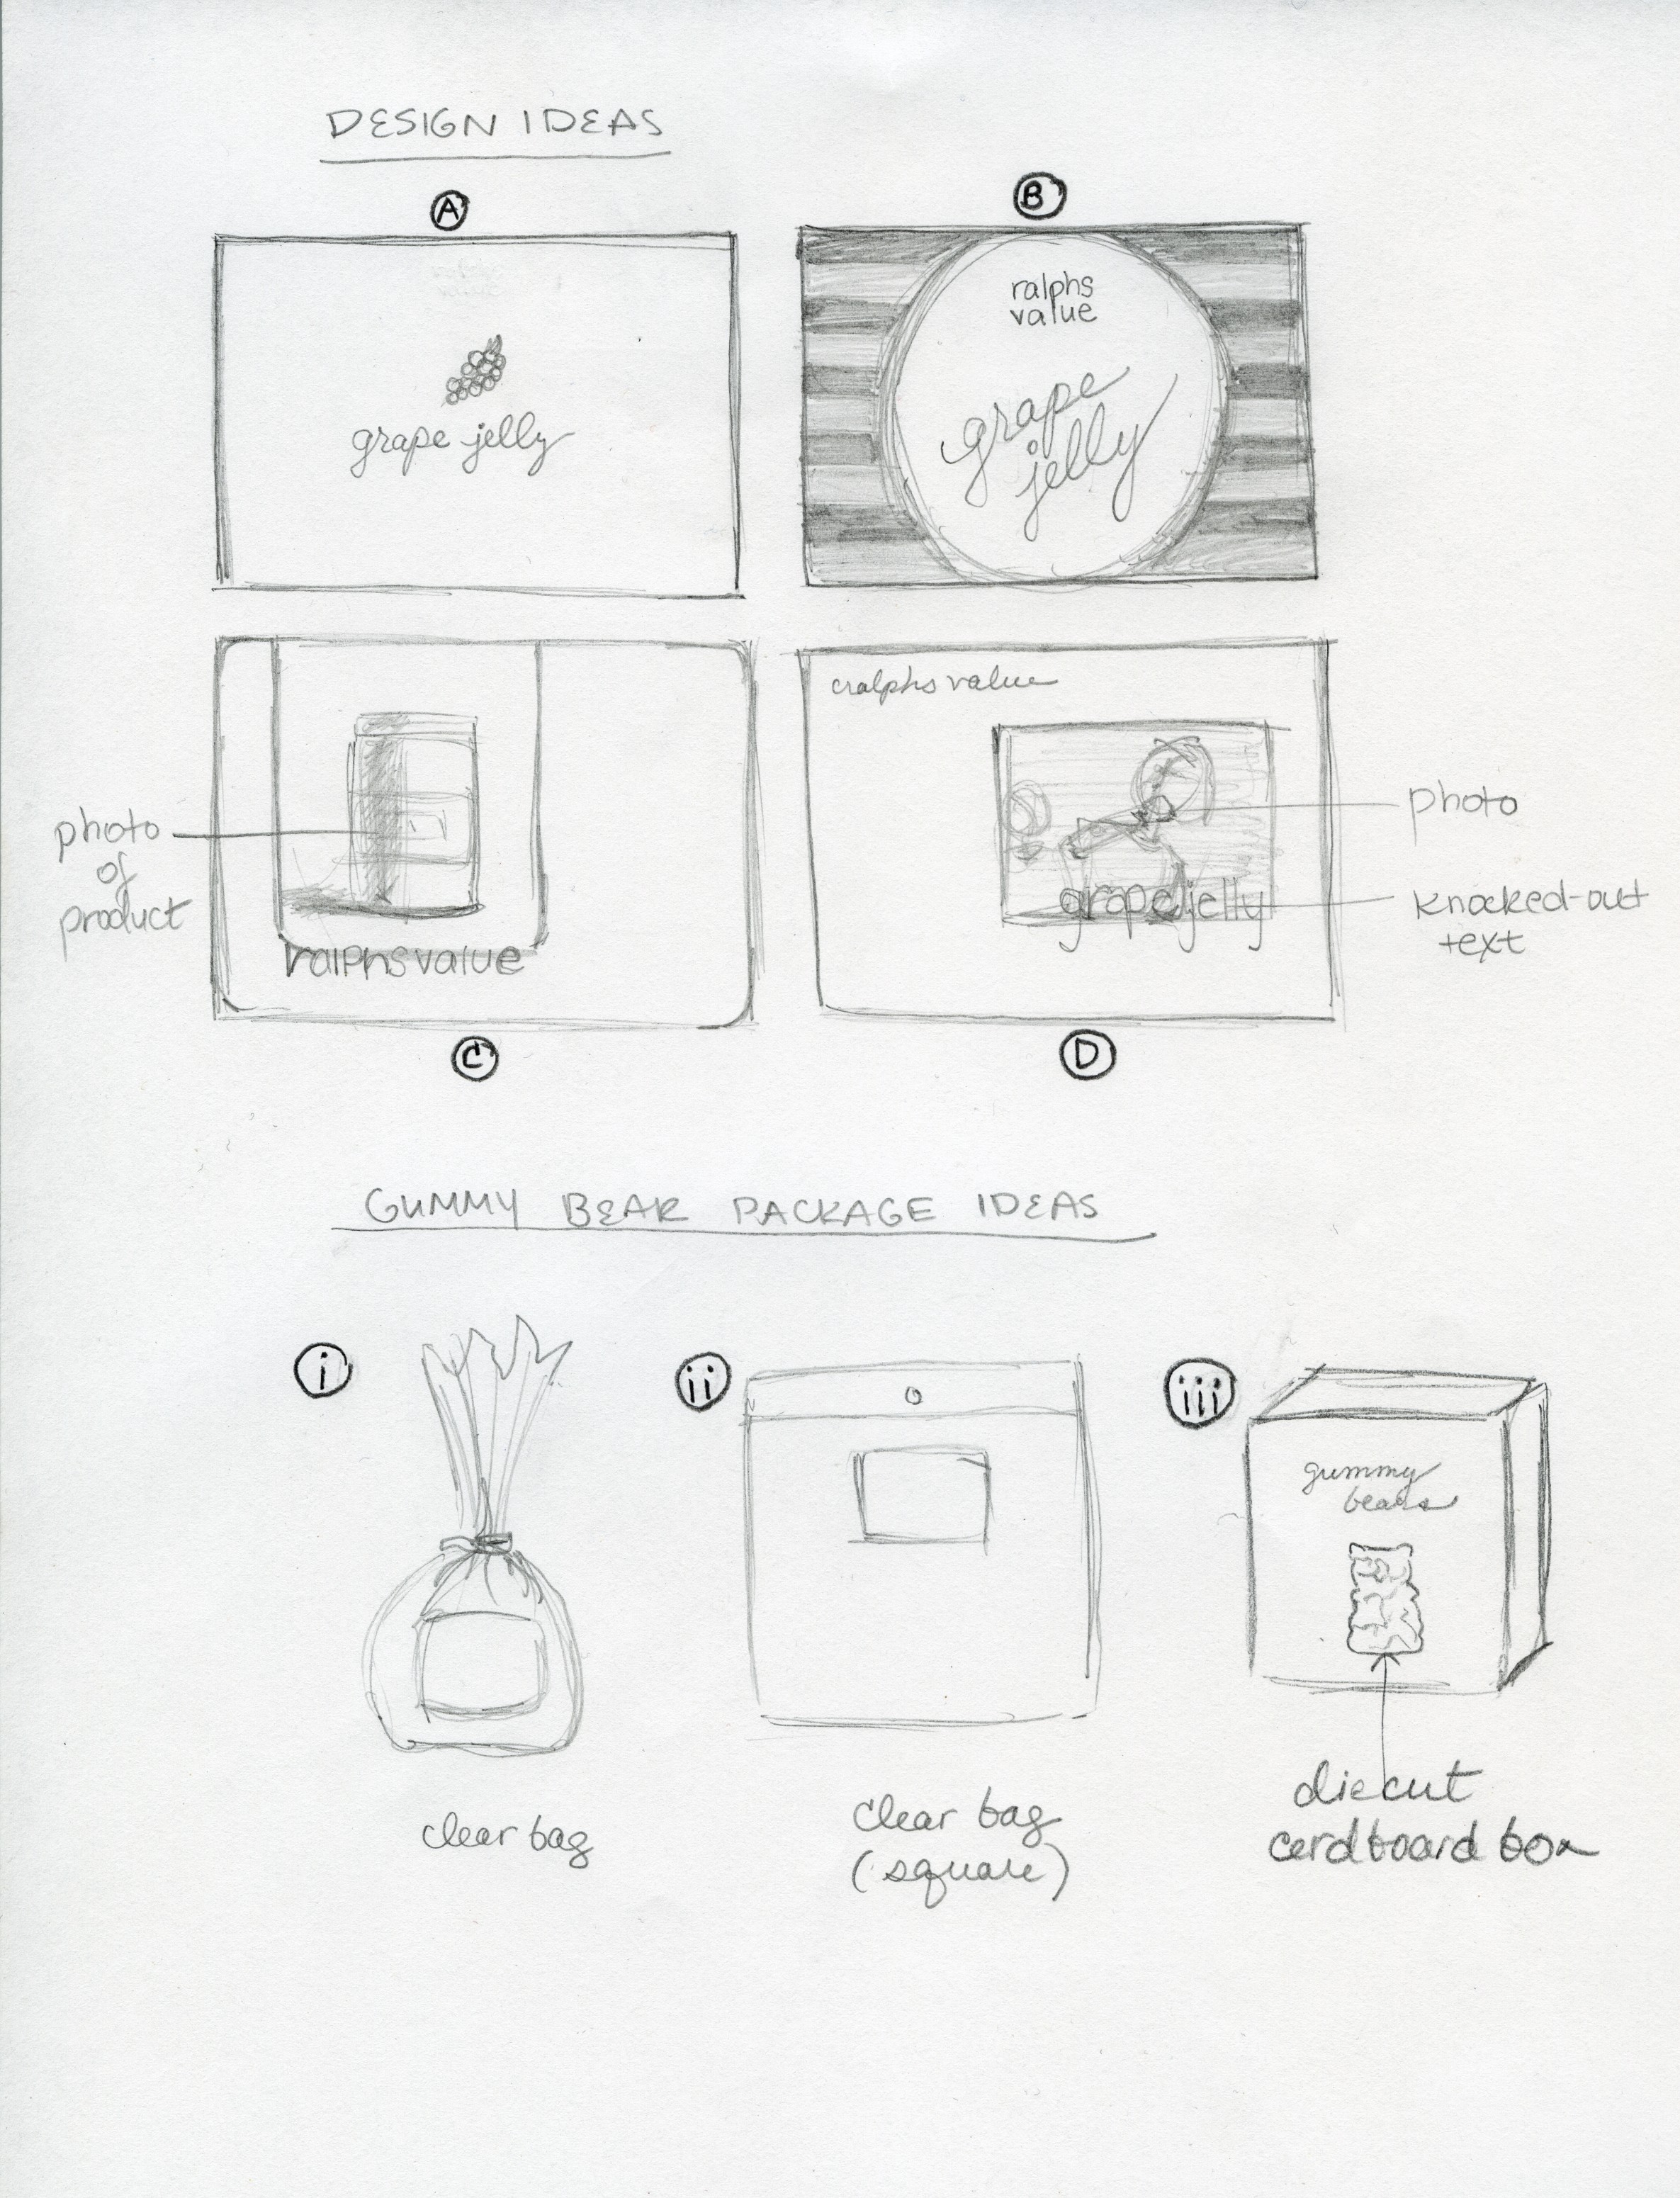 DESIGN IDEAS
A
B
grape jelly
ralphs
value
grape
jelly
ralphs value
photo
of
product
ralphs value
photo
grape jelly
knocked-out
text
C
D
GUMMY BEAR PACKAGE IDEAS
i
ii
iii
gummy
bears
clear bag
clear bag
(square)
diecut
cardboard box